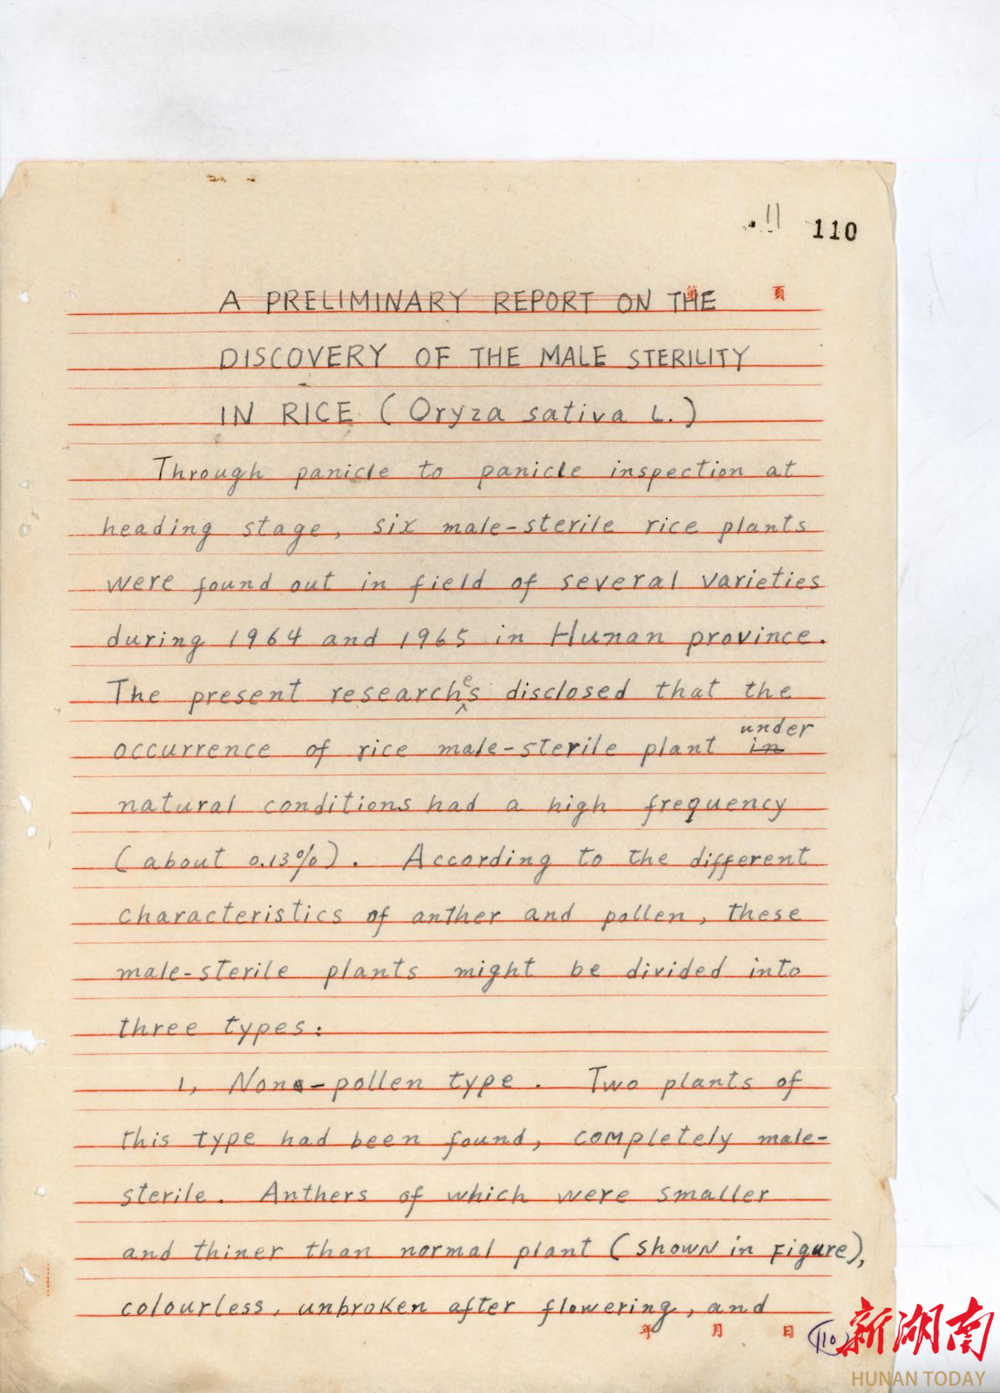 11 110
第 頁
A PRELIMINARY REPORT ON THE
DISCOVERY OF THE MALE STERILITY
IN RICE (Oryza sativa L.)
Through panicle to panicle inspection at
heading stage, six male-sterile rice plants
were found out in field of several varieties
during 1964 and 1965 in Hunan province.
The present researches disclosed that the
occurrence of rice male-sterile plant in under
natural conditions had a high frequency
(about 0.13%). According to the different
characteristics of anther and pollen, these
male-sterile plants might be divided into
three types:
1, None-pollen type. Two plants of
this type had been found, completely male-
sterile. Anthers of which were smaller
and thiner than normal plant (shown in Figure),
colourless, unbroken after flowering, and
年 月 日
110
新湖南
HUNAN TODAY